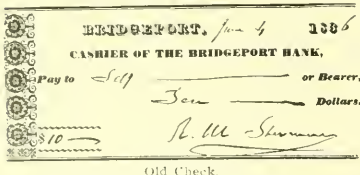 BRIDGEPORT, June 4 1836
CASHIER OF THE BRIDGEPORT BANK,
Pay to Self or Bearer,
Ten Dollars.
$10
Old Check